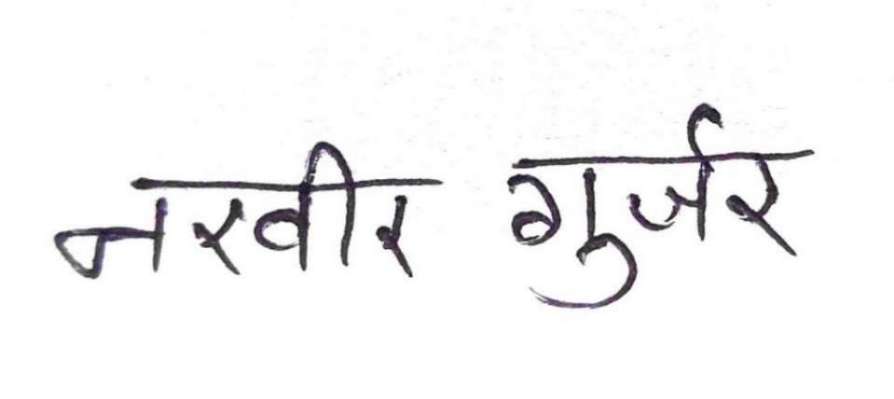 नरवीर गुर्जर